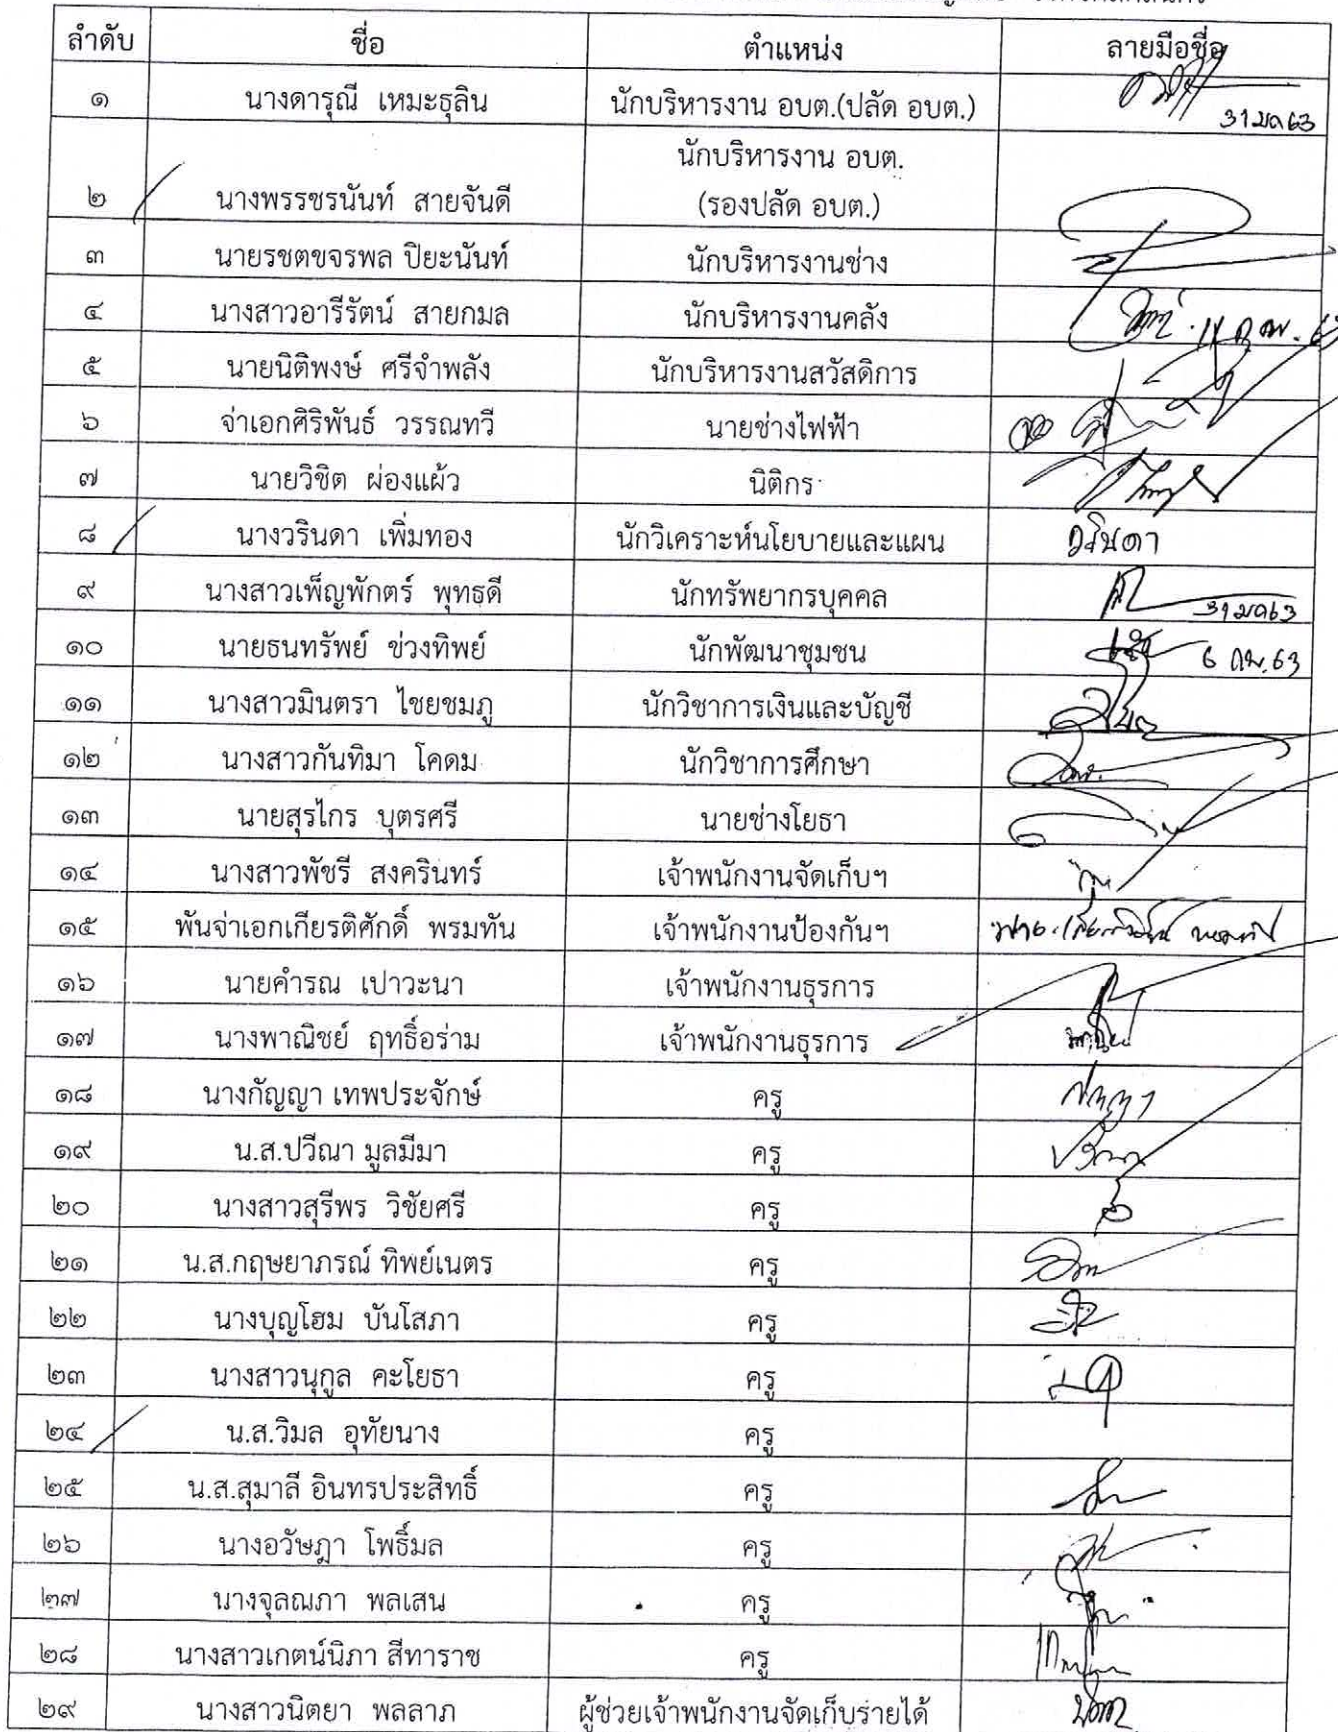 ลำดับ ชื่อ ตำแหน่ง ลายมือชื่อ
๑ นางดารุณี เหมะธุลิน นักบริหารงาน อบต.(ปลัด อบต.)
31 มค 63
นักบริหารงาน อบต.
๒ นางพรรชรนันท์ สายจันดี (รองปลัด อบต.)
๓ นายรชตขจรพล ปิยะนันท์ นักบริหารงานช่าง
๔ นางสาวอารีรัตน์ สายกมล นักบริหารงานคลัง
๕ นายนิติพงษ์ ศรีจำพลัง นักบริหารงานสวัสดิการ
๖ จ่าเอกศิริพันธ์ วรรณทวี นายช่างไฟฟ้า
๗ นายวิชิต ผ่องแผ้ว นิติกร
๘ นางวรินดา เพิ่มทอง นักวิเคราะห์นโยบายและแผน วรินดา
๙ นางสาวเพ็ญพักตร์ พุทธดี นักทรัพยากรบุคคล 31 มค 63
๑๐ นายธนทรัพย์ ช่วงทิพย์ นักพัฒนาชุมชน 6 กพ. 63
๑๑ นางสาวมินตรา ไชยชมภู นักวิชาการเงินและบัญชี
๑๒ นางสาวกันทิมา โคดม นักวิชาการศึกษา
๑๓ นายสุรไกร บุตรศรี นายช่างโยธา
๑๔ นางสาวพัชรี สงครินทร์ เจ้าพนักงานจัดเก็บฯ
๑๕ พันจ่าเอกเกียรติศักดิ์ พรมทัน เจ้าพนักงานป้องกันฯ
๑๖ นายคำรณ เปาวะนา เจ้าพนักงานธุรการ
๑๗ นางพาณิชย์ ฤทธิ์อร่าม เจ้าพนักงานธุรการ
๑๘ นางกัญญา เทพประจักษ์ ครู
๑๙ น.ส.ปวีณา มูลมีมา ครู
๒๐ นางสาวสุรีพร วิชัยศรี ครู
๒๑ น.ส.กฤษยาภรณ์ ทิพย์เนตร ครู
๒๒ นางบุญโฮม บันโสภา ครู
๒๓ นางสาวนุกูล คะโยธา ครู
๒๔ น.ส.วิมล อุทัยนาง ครู
๒๕ น.ส.สุมาลี อินทรประสิทธิ์ ครู
๒๖ นางอวัษฎา โพธิ์มล ครู
๒๗ นางจุลณภา พลเสน ครู
๒๘ นางสาวเกตน์นิภา สีทาราช ครู
๒๙ นางสาวนิตยา พลลาภ ผู้ช่วยเจ้าพนักงานจัดเก็บรายได้